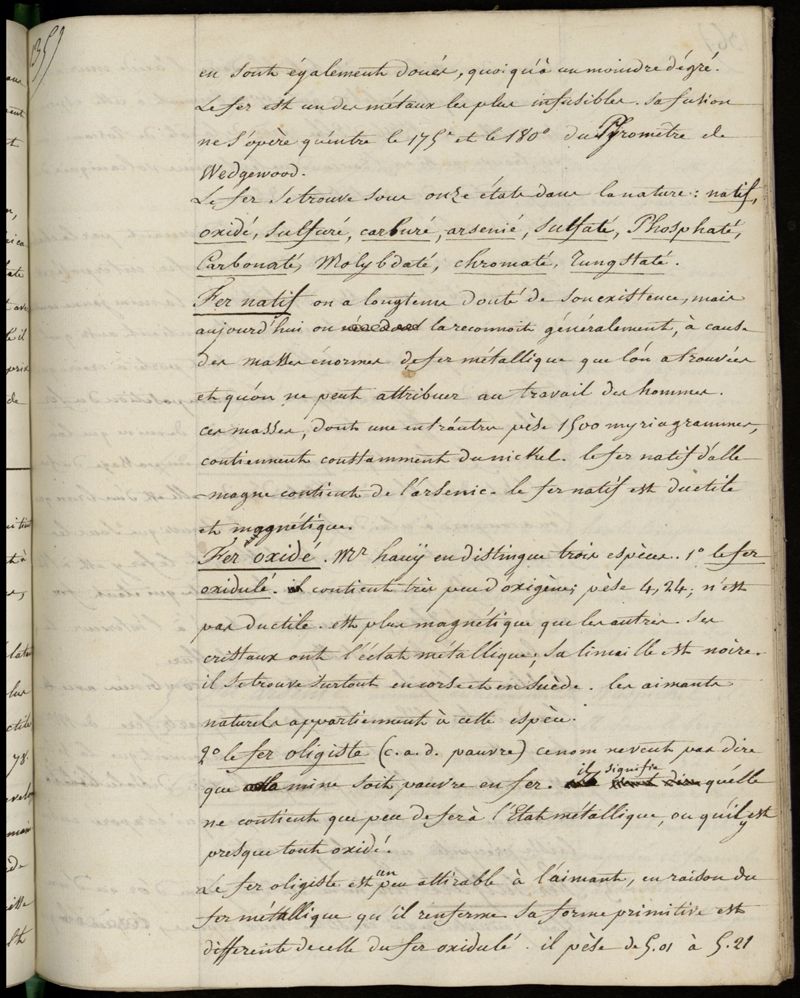 359
en sont également doués, quoiqu'à un moindre dégré.
Le fer est un des métaux les plus infusibles. sa fusion
ne s'opère qu'entre le 175e et le 180° du Pyromètre de
Wedgewood.
Le fer se trouve sous onze états dans la nature : natif,
oxidé, sulfuré, carburé, arsenié, sulfaté, Phosphaté,
Carbonaté, Molybdaté, chromaté, Tungstaté.
Fer natif on a longtems douté de son existence, mais
aujourd'hui on la reconnoit généralement, à cause
des masses énormes de fer métallique que l'on a trouvées
et qu'on ne peut attribuer au travail des hommes.
ces masses, dont une entr'autres pèse 1500 myriagrammes,
contiennent constamment du nickel. le fer natif d'alle
-magne contient de l'arsenic. le fer natif est ductile
et magnétique.
Fer oxidé. Mr haüy en distingue trois espèces. 1° le fer
oxidulé. il contient très peu d'oxigène; pèse 4,24; n'est
pas ductile. est plus magnétique que les autres. Ses
cristaux ont l'éclat métallique; sa limaille est noire.
il se trouve surtout en corse et en suède. les aimants
naturels appartiennent à cette espèce.
2° le fer oligiste (c.a.d. pauvre) ce nom ne veut pas dire
que la mine soit pauvre en fer. il signifie qu'elle
ne contient que peu de fer à l'Etat métallique, ou qu'il y est
presque tout oxidé.
Le fer oligiste est un peu attirable à l'aimant, en raison du
fer métallique qu'il renferme. sa forme primitive est
differente de celle du fer oxidulé. il pèse de 5.01 à 5.21